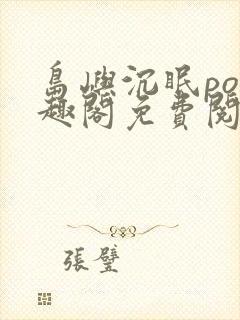 島嶼沉眠po
趣閣免費閱
張璧